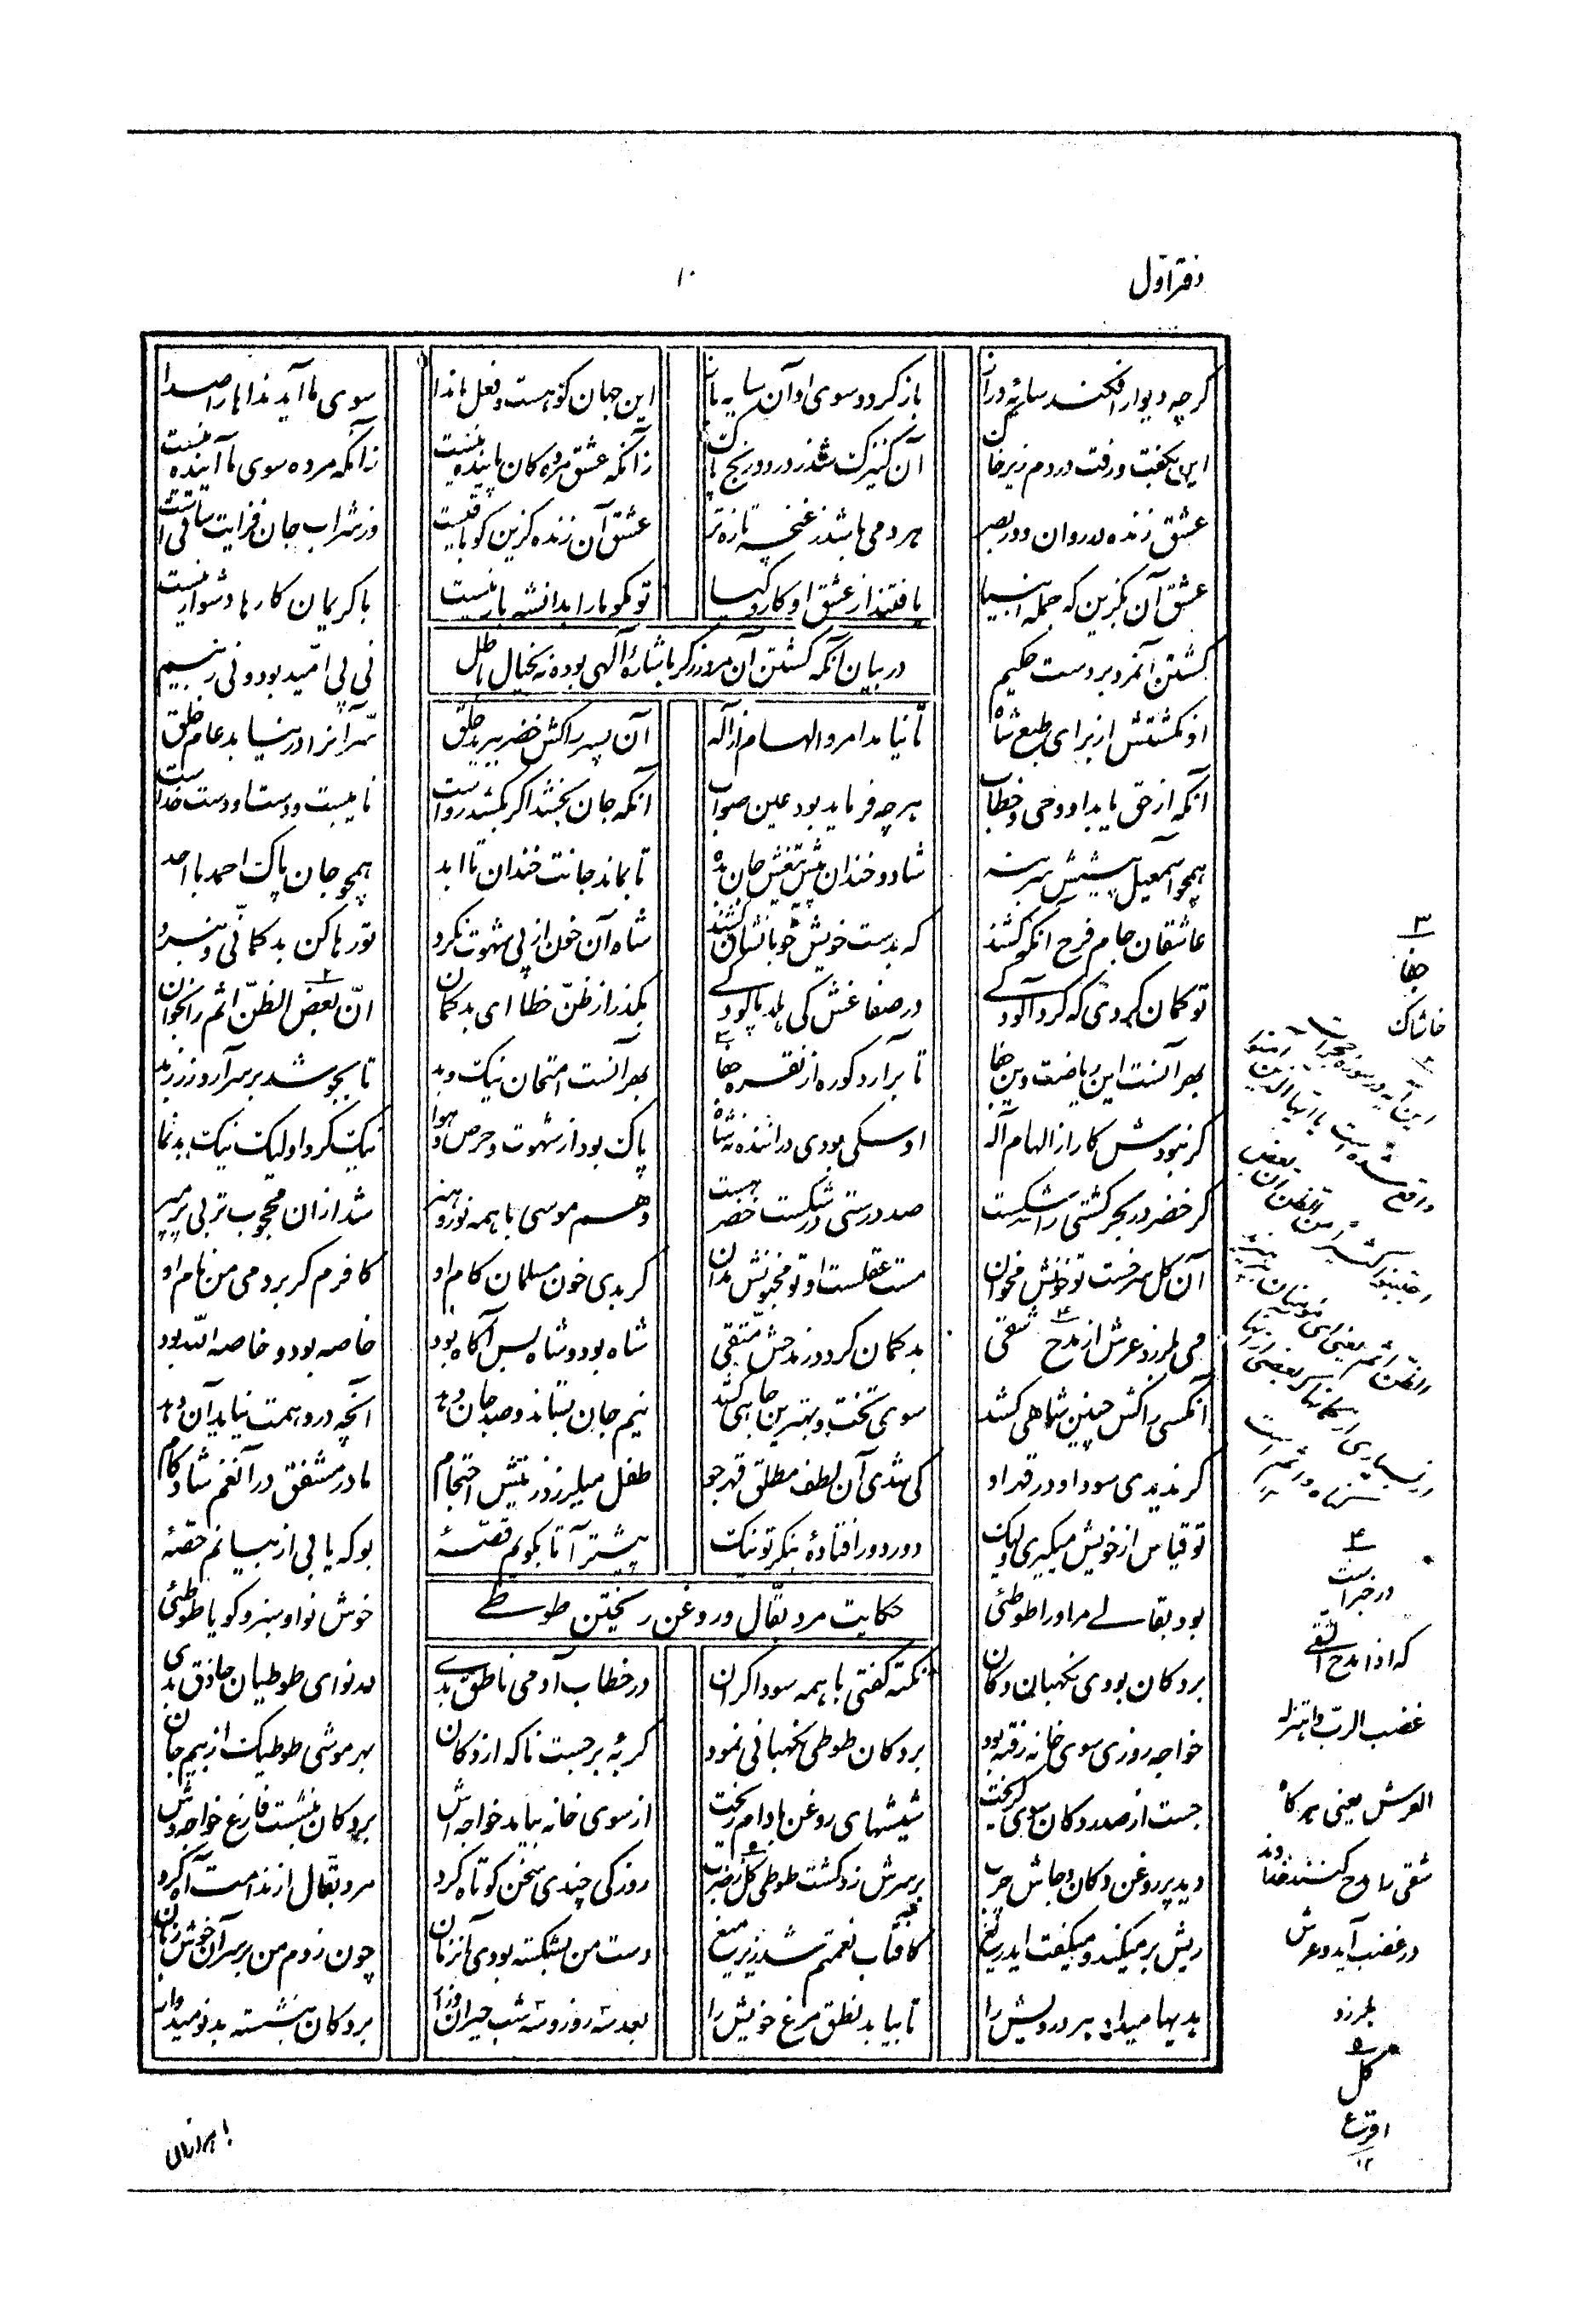 دفتر اوّل
۱۰
گرچه دیوار افکند سایهٔ دراز باز گردد سوی او آن سایه باز این جهان کوهست و فعل ما ندا سوی ما آید نداها را صدا
این بگفت و رفت در دم زیر خاک آن کنیزک شد ز درد و رنج پاک زانکه عشق مرده‌گان پاینده نیست زانکه مرده سوی ما آینده نیست
عشق زنده در روان و در بصر هر دمی باشد ز غنچه تازه‌تر عشق آن زنده گزین کو باقیست وز شراب جان فزایت ساقی است
عشق آن بگزین که جمله انبیا یافتند از عشق او کار و کیا تو مگو ما را بدانشه بار نیست با کریمان کارها دشوار نیست
در بیان آنکه کشتن آن مرد زرگر باشارهٔ الهی بوده نه بخیال باطل
کشتن آنمرد بر دست حکیم نی پی امّید بود و نی ز بیم
او نکشتش از برای طبع شاه تا نیامد امر و الهام از اله آن پسر را کش خضر ببرید حلق سرّ آنرا در نیابد عام خلق
آنکه از حق یابد او وحی و خطاب هرچه فرماید بود عین صواب آنکه جان بخشد اگر بکشد رواست نایبست و دست او دست خداست
همچو اسمعیل پیشش سر بنه شاد و خندان پیش تیغش جان بده تا بماند جانت خندان تا ابد همچو جان پاک احمد با احد
عاشقان جام فرح آنگه کشند که بدست خویش خوبانشان کشند شاه آن خون از پی شهوت نکرد تو رها کن بدگمانی و نبرد
تو گمان کردی که کرد آلودگی در صفا غش کی هلد پالودگی بگذر از ظنّ خطا ای بدگمان انّ بعض الظنّ اثم را بخوان
بهر آنست این ریاضت وین جفا تا برآرد کوره از نقره جفا بهر آنست امتحان نیک و بد تا بجوشد بر سر آرد زر زبد
گر نبودش کار از الهام اله او سگی بودی دراننده نه شاه پاک بود از شهوت و حرص و هوا نیک کرد او لیک نیک بدنما
گر خضر در بحر کشتی را شکست صد درستی در شکست خضر هست وهم موسی با همه نور و هنر شد ازان محجوب تو بی پر مپر
آن گل سرخست تو خونش مخوان مست عقلست او تو مجنونش مدان گر بدی خون مسلمان کام او کافرم گر بردمی من نام او
می بلرزد عرش از مدح شقی بدگمان گردد ز مدحش متّقی شاه بود و شاه بس آگاه بود خاصه بود و خاصه الله بود
آنکسی را کش چنین شاهی کشد سوی تخت و بهترین جاهی کشد نیم جان بستاند و صد جان دهد آنچه در وهمت نیاید آن دهد
گر ندیدی سود او در قهر او کی شدی آن لطف مطلق قهرجو طفل میلرزد ز نیش احتجام مادر مشفق در آنغم شادکام
تو قیاس از خویش میگیری ولیک دور دور افتادهٔ بنگر تو نیک پیشتر آ تا بگویم قصّهٔ بوکه یابی از بیانم حصّهٔ
حکایت مرد بقّال و روغن ریختن طوطی
بود بقالی مر او را طوطئی خوش نوا و سبز و گویا طوطئی
بر دکان بودی نگهبان دکان نکته گفتی با همه سوداگران در خطاب آدمی ناطق بدی در نوای طوطیان حاذق بدی
خواجه روزی سوی خانه رفته بود بر دکان طوطی نگهبانی نمود گربهٔ برجست ناگه از دکان بهر موشی طوطیک از بیم جان
جست از صدر دکان سوی گریخت شیشهای روغن بادام ریخت از سوی خانه بیامد خواجه‌اش بر دکان بنشست فارغ خواجه‌وش
دید پر روغن دکان و جاش چرب بر سرش زد گشت طوطی کل ز ضرب روزکی چندی سخن کوتاه کرد مرد بقّال از ندامت آه کرد
ریش بر میکند و میگفت ایدریغ کافتاب نعمتم شد زیر میغ دست من بشکسته بودی آنزمان چون زدم من بر سر آن خوش زبان
هدیها میداد هر درویش را تا بیابد نطق مرغ خویش را بعد سه روز و سه شب حیران و زار بر دکان بنشسته بد نومیدوار
۳
جفا
خاشاک
۴
در خبر است
که اذا مدح الشقی
غضب الرب و اهتز له
العرش یعنی هرگاه
شقی را مدح کنند خداوند
در غضب آید و عرش
بلرزد
۵
کل
اقرع
۱۲